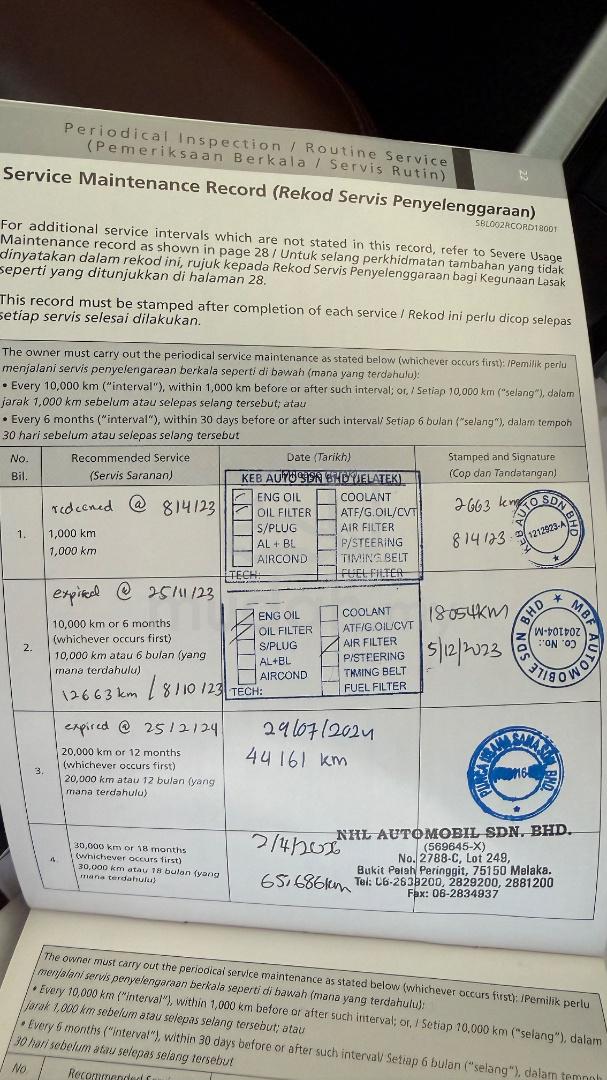 Periodical Inspection / Routine Service
(Pemeriksaan Berkala / Servis Rutin)
22
Service Maintenance Record (Rekod Servis Penyelenggaraan)
SBL002RCORD18001
For additional service intervals which are not stated in this record, refer to Severe Usage
Maintenance record as shown in page 28 / Untuk selang perkhidmatan tambahan yang tidak
dinyatakan dalam rekod ini, rujuk kepada Rekod Servis Penyelenggaraan bagi Kegunaan Lasak
seperti yang ditunjukkan di halaman 28.
This record must be stamped after completion of each service / Rekod ini perlu dicop selepas
setiap servis selesai dilakukan.
The owner must carry out the periodical service maintenance as stated below (whichever occurs first): /Pemilik perlu
menjalani servis penyelengaraan berkala seperti di bawah (mana yang terdahulu):
• Every 10,000 km ("interval"), within 1,000 km before or after such interval; or, / Setiap 10,000 km ("selang"), dalam
jarak 1,000 km sebelum atau selepas selang tersebut; atau
• Every 6 months ("interval"), within 30 days before or after such interval/ Setiap 6 bulan ("selang"), dalam tempoh
30 hari sebelum atau selepas selang tersebut
No.
Bil.
Recommended Service
(Servis Saranan)
Date (Tarikh)
Stamped and Signature
(Cop dan Tandatangan)
1.
redeemed @ 8/4/23
1,000 km
1,000 km
KEB AUTO SDN BHD (JELATEK)
ENG OIL
OIL FILTER
S/PLUG
AL + BL
AIRCOND
TECH:
COOLANT
ATF/G.OIL/CVT
AIR FILTER
P/STEERING
TIMING BELT
FUEL FILTER
2663 km
8/4/23
KEB AUTO SDN BHD
1212923-A
2.
expired @ 25/11/23
10,000 km or 6 months
(whichever occurs first)
10,000 km atau 6 bulan (yang
mana terdahulu)
12663 km / 8/10/23
ENG OIL
OIL FILTER
S/PLUG
AL+BL
AIRCOND
TECH:
COOLANT
ATF/G.OIL/CVT
AIR FILTER
P/STEERING
TIMING BELT
FUEL FILTER
18054KM
5/12/2023
MBF AUTOMOBILE SDN BHD
Co. No.:
204104-M
3.
expired @ 25/2/24
20,000 km or 12 months
(whichever occurs first)
20,000 km atau 12 bulan (yang
mana terdahulu)
29/07/2024
44161 km
4.
30,000 km or 18 months
(whichever occurs first)
30,000 km atau 18 bulan (yang
mana terdahulu)
65,686km
NHL AUTOMOBIL SDN. BHD.
(569645-X)
No. 2788-C, Lot 249,
Bukit Palah Peringgit, 75150 Melaka.
Tel: 06-2839200, 2829200, 2881200
Fax: 06-2834937
The owner must carry out the periodical service maintenance as stated below (whichever occurs first): /Pemilik perlu
menjalani servis penyelengaraan berkala seperti di bawah (mana yang terdahulu):
• Every 10,000 km ("interval"), within 1,000 km before or after such interval; or, / Setiap 10,000 km ("selang"), dalam
jarak 1,000 km sebelum atau selepas selang tersebut; atau
• Every 6 months ("interval"), within 30 days before or after such interval/ Setiap 6 bulan ("selang"), dalam tempoh
30 hari sebelum atau selepas selang tersebut
No.
Recommended